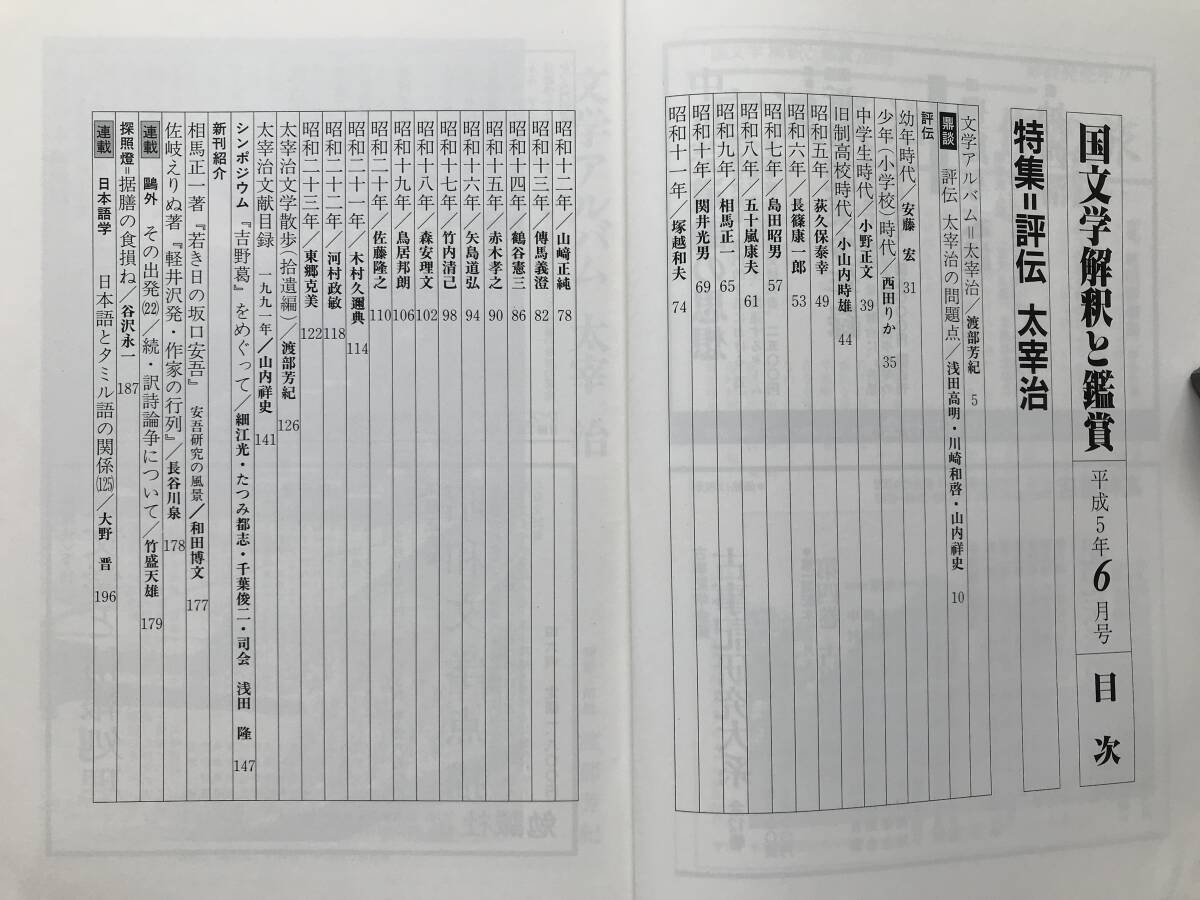 国文学解釈と鑑賞 平成5年6月号 目次
特集=評伝 太宰治
文学アルバム=太宰治/渡部芳紀 5
鼎談 評伝 太宰治の問題点/浅田高明・川崎和啓・山内祥史 10
評伝
幼年時代/安藤 宏 31
少年(小学校)時代/西田りか 35
中学生時代/小野正文 39
旧制高校時代/小山内時雄 44
昭和五年/荻久保泰幸 49
昭和六年/長篠康一郎 53
昭和七年/島田昭男 57
昭和八年/五十嵐康夫 61
昭和九年/相馬正一 65
昭和十年/関井光男 69
昭和十一年/塚越和夫 74
昭和十二年/山﨑正純 78
昭和十三年/傳馬義澄 82
昭和十四年/鶴谷憲三 86
昭和十五年/赤木孝之 90
昭和十六年/矢島道弘 94
昭和十七年/竹内清己 98
昭和十八年/森安理文 102
昭和十九年/鳥居邦朗 106
昭和二十年/佐藤隆之 110
昭和二十一年/木村久邇典 114
昭和二十二年/河村政敏 118
昭和二十三年/東郷克美 122
太宰治文学散歩(拾遺編)/渡部芳紀 126
太宰治文献目録 一九九一年/山内祥史 141
シンポジウム 『吉野葛』をめぐって/細江光・たつみ都志・千葉俊二・司会 浅田 隆 147
新刊紹介
相馬正一著『若き日の坂口安吾』 安吾研究の風景/和田博文 177
佐岐えりぬ著『軽井沢発・作家の行列』/長谷川泉 178
連載 鷗外 その出発(22)/続・訳詩論争について/竹盛天雄 179
探照燈=据膳の食損ね/谷沢永一 187
連載 日本語学 日本語とタミル語の関係(125)/大野 晋 196